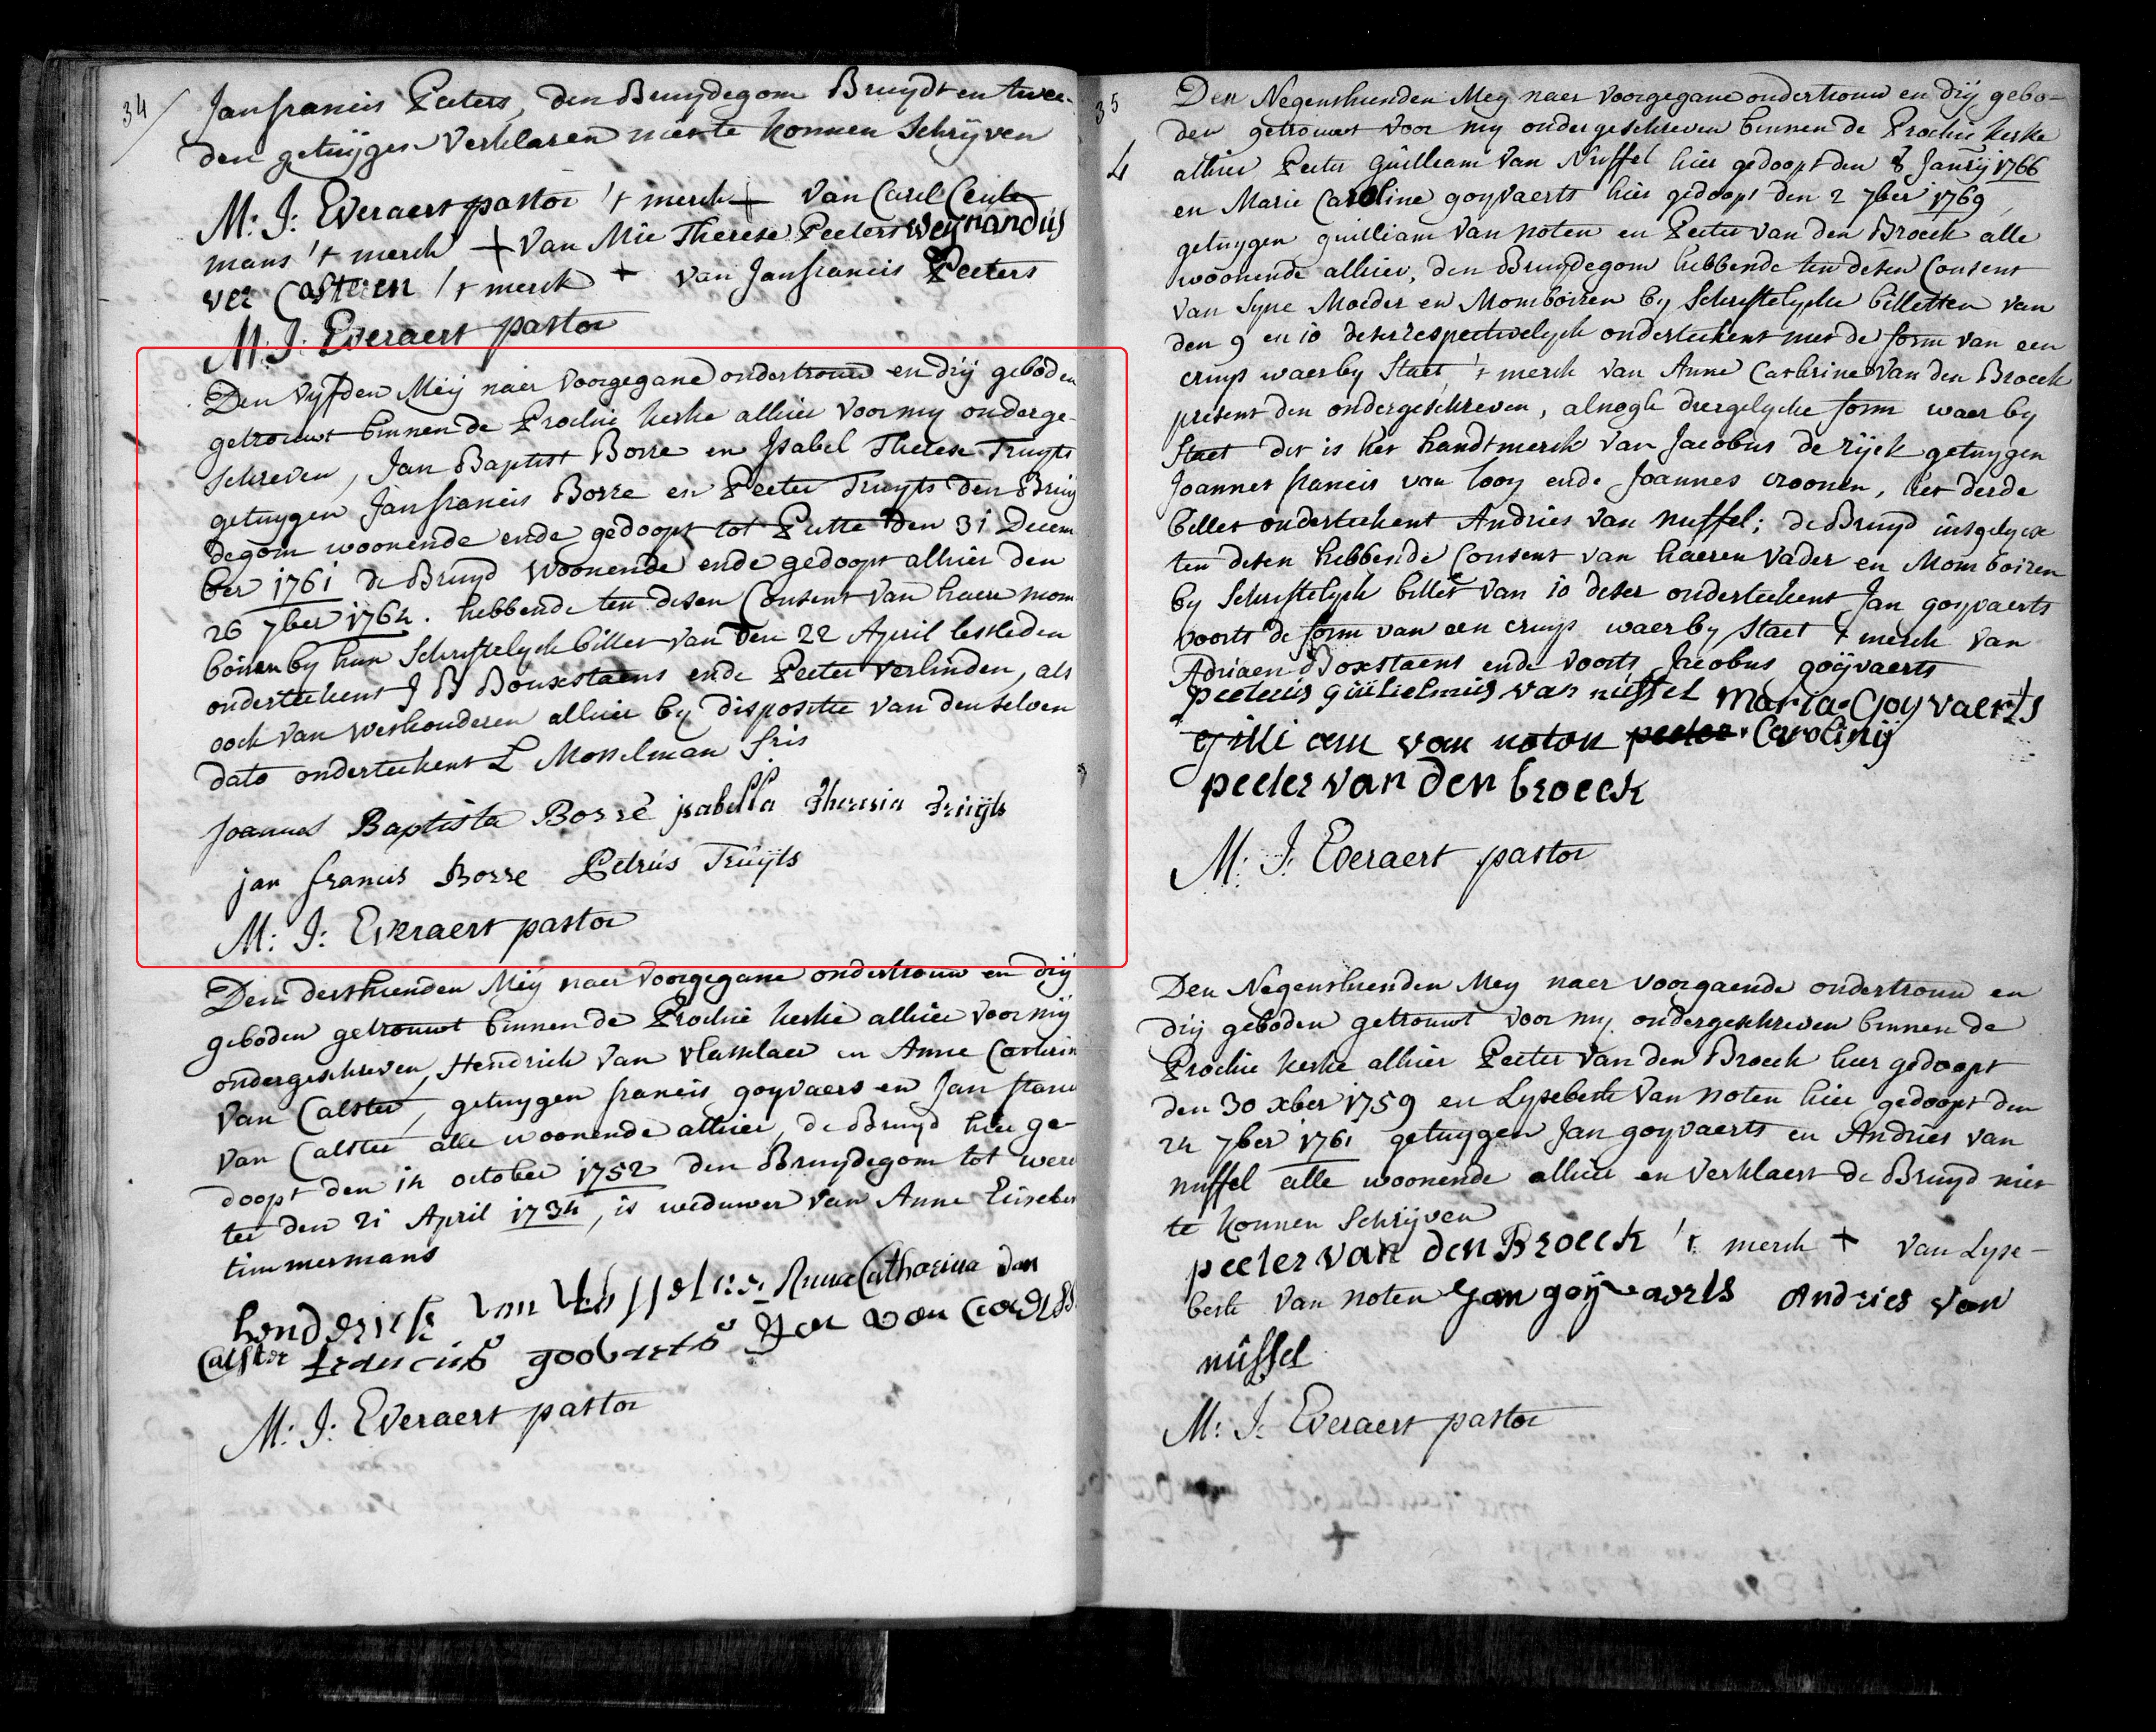 34
Jan francis Peeters, den Bruydegom Bruydt en twee
den getuijgen verklaren niet te konnen Schrijven
M: J: Everaert pastor 't merck + van Carel Ceule
mans 't merck + van Mie Therese Peeters weijnandus
ver Casteren 't merck + van Jan francis Peeters
M: J: Everaert pastor
Den vyfden Meij naer voorgegane ondertrouw en drij geboden
getrouwt binnen de Prochie kerke alhier voor my onderge-
schreven, Jan Baptist Borre en Isabel Therese Truyts
getuygen Jan francis Borre en Peeter Truyts den Bruy
degom woonende ende gedoopt tot Putte den 31 Decem
ber 1761 de Bruyd woonende ende gedoopt alhier den
26 7ber 1764. hebbende ten desen Consent van haere mom
boiren by hun Schriftelyck billet van den 22 April lestleden
onderteekent J B Bouxstaens ende Peeter verlinden, als
oock van wethouderen alhier by dispositie van den selven
dato onderteekent L Mosselman Gris
Joannes Baptista Borré isabella Theresia Truijts
jan francis Borre Petrus Truijts
M: J: Everaert pastor
Den derthienden Meij naer voorgegane ondertrouw en drij
geboden getrouwt binnen de Prochie kerke alhier voor mij
ondergeschreven, Hendrick van vlasselaer en Anne Cathrin
van Calster, getuygen francis goyvaers en Jan
van Calster alle woonende alhier, de Bruyd hier ge-
doopt den 14 october 1752 den Bruydegom tot werc
ter den 21 April 1734, is weduwer van Anne Elisebet
timmermans
henderick van Anna Catharina van
Calster francius goovaerts Jan van
M: J: Everaert pastor
35
4
Den Negenthienden Mey naer voorgegane ondertrouw en drij gebo-
den getrouwt voor my ondergeschreven binnen de Prochie kerke
alhier Peeter Guilliam van Nuffel hier gedoopt den 8 Janrij 1766
en Marie Caroline goyvaerts hier gedoopt den 2 7ber 1769,
getuygen guilliam van noten en Peeter van den Broeck alle
woonende alhier, den Bruydegom hebbende ten desen Consent
van Syne Moeder en Momboiren by Schriftelycke billetten van
den 9 en 10 deser respectivelyck onderteekent met de form van een
cruys waer by Staet 't merck van Anne Cathrine van den Broeck
present den ondergeschreven, alnogh diergelycke form waer by
Staet dit is het handtmerck van Jacobus de rijck getuygen
Joannes francis van looy ende Joannes croonen, het derde
billet onderteekent Andries van nuffel; de Bruyd insgelyckx
ten desen hebbende Consent van haeren vader en Momboiren
by Schriftelyck billet van 10 deser onderteekent Jan goyvaerts
voorts de form van een cruys waer by Staet t merck van
Adriaen Boxstaens ende voorts Jacobus goijvaerts
peeteris guilielmus van nuffel Maria Goyvaerts
gilli am van noton peeter Carolinij
peeter van den broeck
M: J: Everaert pastor
Den Negenthienden Mey naer voorgaende ondertrouw en
drij geboden getrouwt voor my ondergeschreven binnen de
Prochie kerke alhier Peeter van den Broeck hier gedoopt
den 30 xber 1759 en Lysebeth van noten hier gedoopt den
24 7ber 1761 getuygen Jan goyvaerts en Andries van
nuffel alle woonende alhier en verklaert de Bruyd niet
te konnen Schrijven
peeter van den Broeck 't merck + van Lyse-
beth van noten Jan goijvaerts Andries van
nuffel
M: J: Everaert pastor